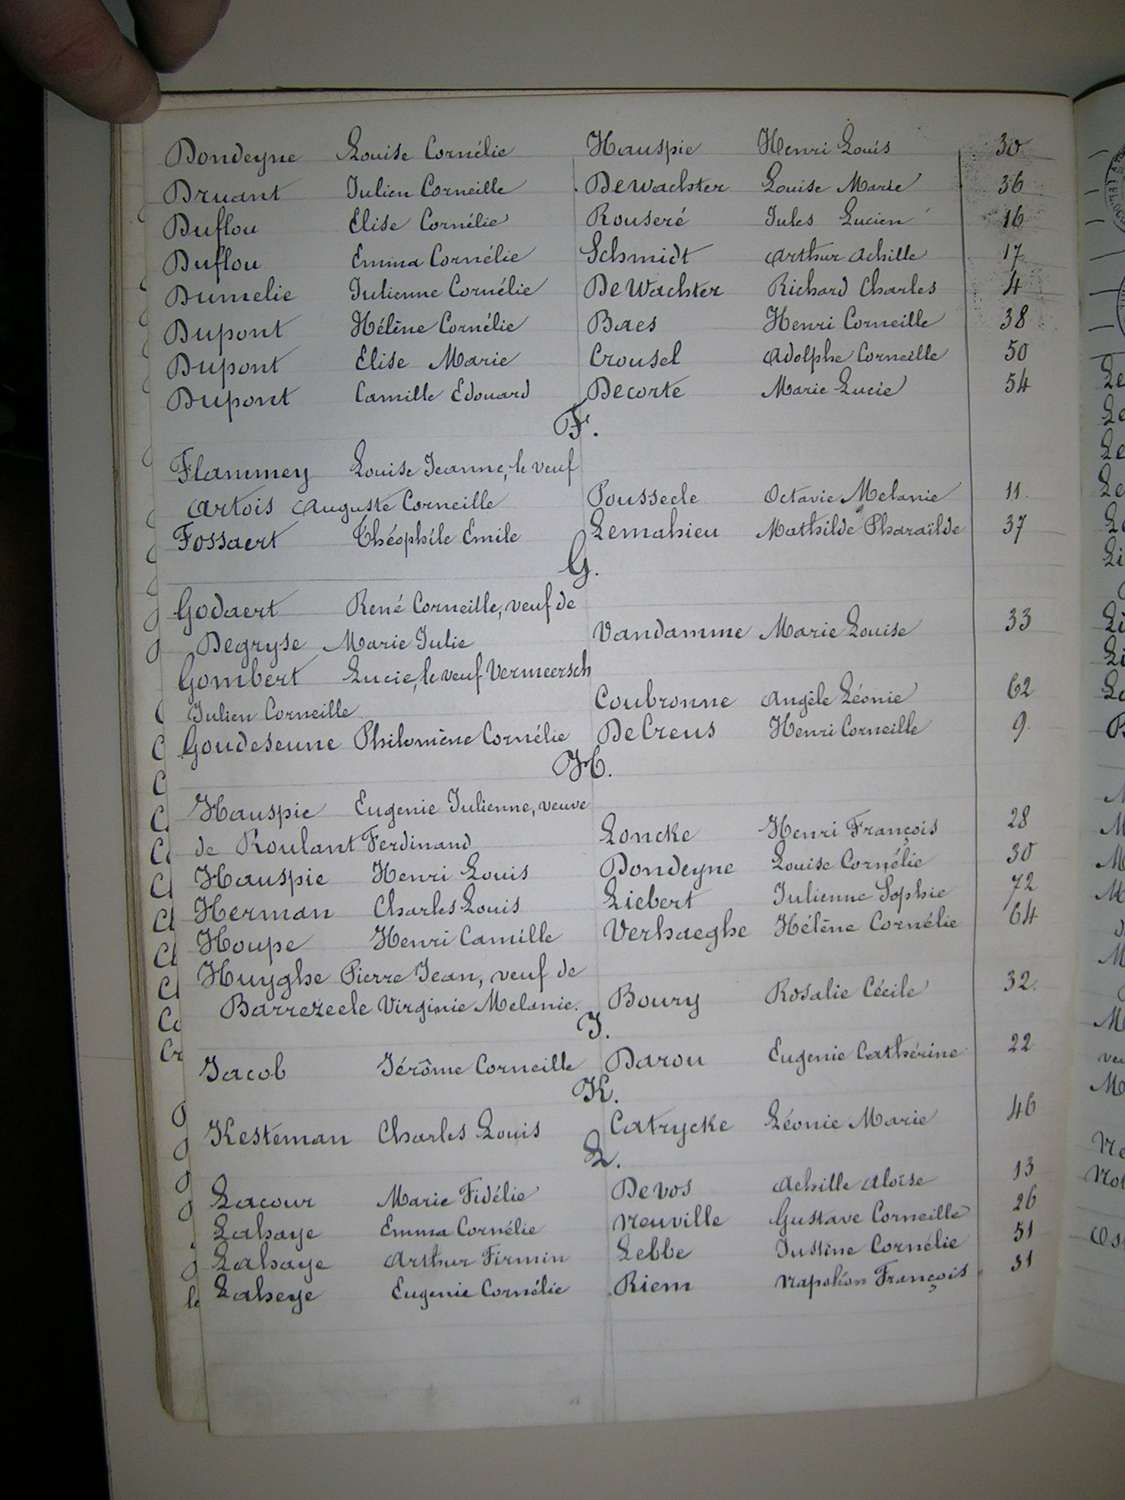 Dondeyne Louise Cornélie Hauspie Henri Louis 30
Druant Julien Corneille Dewachter Louise Marie 36
Duflou Elise Cornélie Rouseré Jules Lucien 16
Duflou Emma Cornélie Schmidt Arthur Achille 17
Dumelie Julienne Cornélie DeWachter Richard Charles 4
Dupont Hélène Cornélie Baes Henri Corneille 38
Dupont Elise Marie Crousel Adolphe Corneille 50
Dupont Camille Edouard Decorte Marie Lucie 54
F.
Flammey Louise Jeanne, le veuf
Artois Auguste Corneille Pousseele Octavie Melanie 11.
Fossaert Théophile Emile Lemahieu Mathilde Pharaïlde 37
G.
Godaert René Corneille, veuf de
Degryse Marie Julie Vandamme Marie Louise 33
Gombert Lucie, le veuf Vermeersch
Julien Corneille Coubronne Angèle Léonie 62
Goudeseune Philomène Cornélie DeCreus Henri Corneille 9.
H.
Hauspie Eugenie Julienne, veuve
de Roulant Ferdinand Loncke Henri François 28
Hauspie Henri Louis Dondeyne Louise Cornélie 30
Herman Charles Louis Liebert Julienne Sophie 72
Houpe Henri Camille Verhaeghe Hélène Cornélie 64
Huyghe Pierre Jean, veuf de
Barrezeele Virginie Melanie. Boury Rosalie Cécile 32.
J.
Jacob Jérôme Corneille Darou Eugenie Cathérine 22
K.
Kesteman Charles Louis Catrycke Léonie Marie 46
L.
Lacour Marie Fidélie Devos Achille Aloïse 13
Lahaye Emma Cornélie Neuville Gustave Corneille 26
Lahaye Arthur Firmin Lebbe Justine Cornélie 51
Laheye Eugenie Cornélie Riem Napoléon François 31